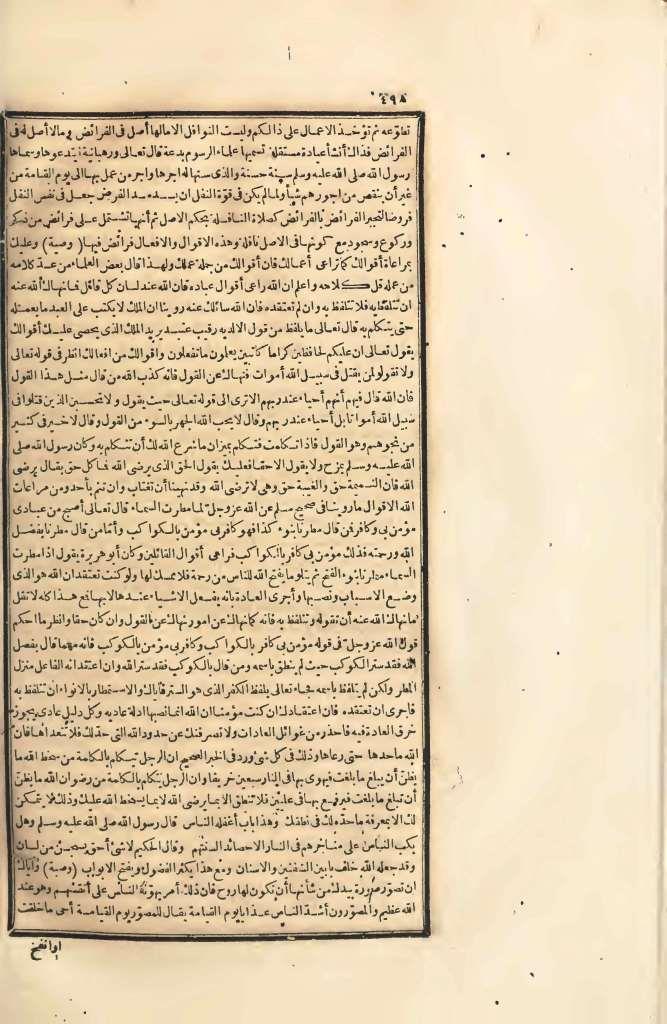 ٤٩٨
تطوعه ثم تؤخذ الاعمال على ذالكم وليست النوافل الا مالها أصل فى الفرائض وما لا أصل له فى
الفرائض فذلك انشاء عبادة مستقلة تسميها علماء الرسوم بدعة قال تعالى ورهبانية ابتدعوها وسماها
رسول الله صلى الله عليه وسلم سنة حسنة والذى سنها له اجرها واجر من عمل بها الى يوم القيامة من
غير أن ينقص من اجورهم شيأ ولما لم يكن فى قوة النفل ان يسد مسد الفرض جعل فى نفس النفل
فروضا لتجبر الفرائض بالفرائض كصلاة النافلة بحكم الاصل ثم أنها تشتمل على فرائض من ذكر
وركوع وسجود مع كونها فى الاصل نافلة وهذه الاقوال والافعال فرائض فيها (وصية) وعليك
بمراعاة أقوالك كما تراعى أعمالك فان أقوالك من جملة عملك ولهذا قال بعض العلماء من عد كلامه
من عمله قل كلامه واعلم ان الله راعى أقوال عباده فان الله عند لسان كل قائل فما نهاك ألله عنه
ان تتلفظ به فلا تتلفظ به وان لم تعتقده فان الله سائلك عنه روينا ان الملك لا يكتب على العبد ما يعمله
حتى يتكلم به قال تعالى ما يلفظ من قول الا لديه رقيب عتيد يريد الملك الذى يحصى عليك أقوالك
يقول تعالى ان عليكم لحافظين كراما كاتبين يعلمون ما تفعلون واقوالك من افعالك انظر فى قوله تعالى
ولا تقولوا لمن يقتل فى سبيل الله أموات فنهاك عن القول فانه كذب الله من قال مثل هذا القول
فان الله قال فيهم أنهم أحياء عند ربهم الا ترى الى قوله تعالى حيث يقول ولا تحسبن الذين قتلوا فى
سبيل الله أمواتا بل أحياء عند ربهم وقال لا يحب الله الجهر بالسوء من القول وقال لا خير فى كثير
من نجواهم وهو القول فاذا تكلمت فتكلم بميزان ما شرع الله لك أن تتكلم به وكان رسول الله صلى
الله عليه وسلم يمزح ولا يقول الا حقا فعليك بقول الحق الذى يرضى الله فما كل حق يقال يرضى
الله فان النميمة حق والغيبة حق وهى لا ترضى الله وقد نهينا أن نغتاب وان ننم بأحد ومن مراعات
الله الاقوال ما روينا فى صحيح مسلم عن الله عز وجل لما مطرت السماء قال تعالى أصبح من عبادى
مؤمن بى وكافر فمن قال مطرنا بنوء كذا فهو كافر بى مؤمن بالكواكب وأما من قال مطرنا بفضل
الله ورحمته فذلك مؤمن بى كافر بالكواكب فراعى أقوال القائلين وكان أبو هريرة يقول اذا مطرت
السماء مطرنا بنوء الفتح ثم يتلو ما يفتح الله للناس من رحمة فلا ممسك لها ولو كنت تعتقد ان الله هو الذى
وضع الاسباب ونصبها وأجرى العادة بانه يفعل الاشياء عندها لا بها فمع هذا كله لا تقل
ما نهاك الله عنه أن تقوله وتتلفظ به فانه كما نهاك عن امور نهاك عن القول وان كان حقا وانظر ما احكم
قول الله عز وجل فى قوله مؤمن بى كافر بالكواكب وكافر بى مؤمن بالكوكب فانه مهما قال بفضل
الله فقد ستر الكوكب حيث لم ينطق باسمه ومن قال بالكوكب فقد ستر الله وان اعتقد انه الفاعل منزل
المطر ولكن لم يتلفظ باسمه فجاء تعالى بلفظ الكفر الذى هو الستر فاياك والاستمطار بالانواء ان تتلفظ به
فاحرى ان تعتقده فان اعتقادك ان كنت مؤمنا ان الله انما نصبها ادلة عاديه وكل دليل عادى يجوز
خرق العادة فيه فاحذر من غوائل العادات ولا تصرفنك عن حدود الله التى حد لك فلا تتعداها فان
الله ما حدها حتى رعاها وذلك فى كل شئ ورد فى الخبر الصحيح ان الرجل تبكلم بالكلمة من سخط الله ما
يظن أن يبلغ ما بلغت فيهوى بها فى النار سبعين خريفا وان الرجل يتكلم بالكلمة من رضوان الله ما يظن
أن تبلغ ما بلغت فيرفع بها فى عليين فلا تنطق الا بما يرضى الله لا بما يسخط الله عليك وذلك لا يتمكن
لك الا بمعرفة ما حده لك فى نطقك وهذا باب أغفله الناس قال رسول الله صلى الله عليه وسلم وهل
يكب الناس على مناخرهم فى النار الا حصائد السنتهم وقال الحكيم لا شئ أحق بسجن من لسان
وقد جعله الله خلف بابين الشفتين والاسنان ومع هذا يكثر الفضول ويفتح الابواب (وصية) واياك
ان تصور صورة بيدك من شأنها أن يكون لها روح فان ذلك أمر يهونه الناس على أنفسهم وهو عند
الله عظيم والمصورون أشد الناس عذابا يوم القيامة يقال للمصور يوم القيامة أحى ما خلقت
او انفخ